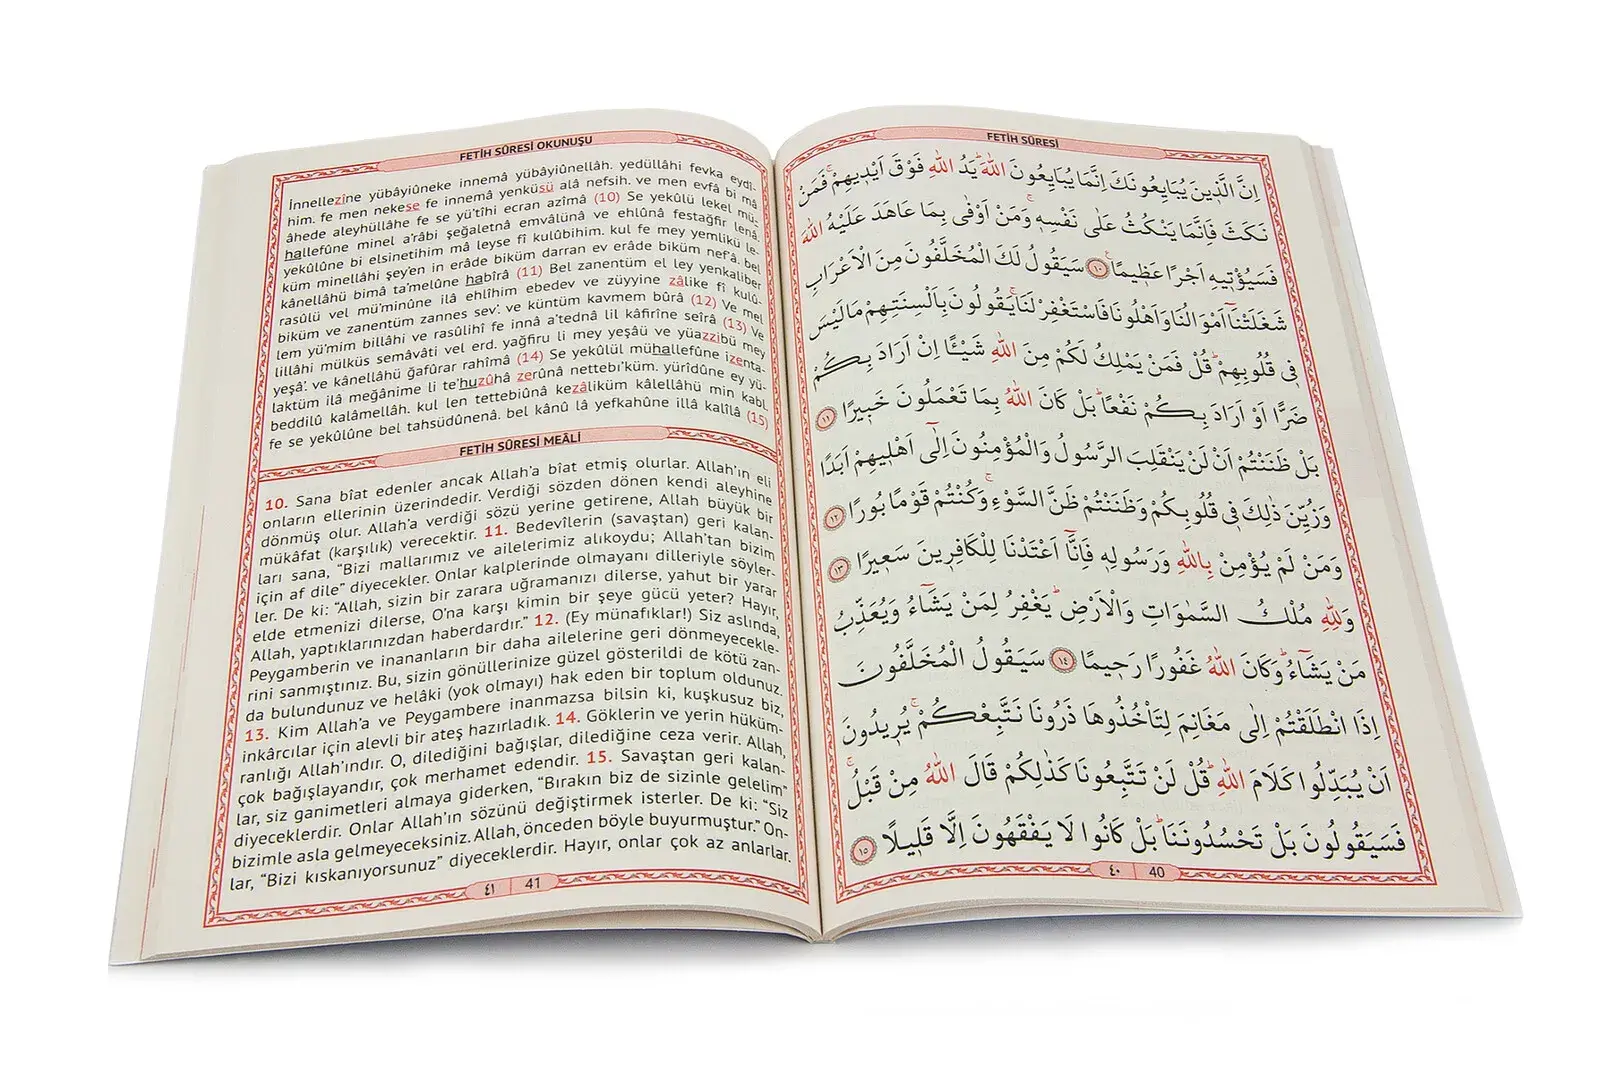 FETİH SÛRESİ
اِنَّ الَّذ۪ينَ يُبَايِعُونَكَ اِنَّمَا يُبَايِعُونَ اللّٰهَۜ يَدُ اللّٰهِ فَوْقَ اَيْد۪يهِمْۚ فَمَنْ
نَكَثَ فَاِنَّمَا يَنْكُثُ عَلٰى نَفْسِه۪ۚ وَمَنْ اَوْفٰى بِمَا عَاهَدَ عَلَيْهُ اللّٰهَ
فَسَيُؤْت۪يهِ اَجْرًا عَظ۪يمًاۚ ١٠ سَيَقُولُ لَكَ الْمُخَلَّفُونَ مِنَ الْاَعْرَابِ
شَغَلَتْنَٓا اَمْوَالُنَا وَاَهْلُونَا فَاسْتَغْفِرْ لَنَاۚ يَقُولُونَ بِاَلْسِنَتِهِمْ مَا لَيْسَ
ف۪ي قُلُوبِهِمْۜ قُلْ فَمَنْ يَمْلِكُ لَكُمْ مِنَ اللّٰهِ شَيْـًٔا اِنْ اَرَادَ بِكُمْ
ضَرًّا اَوْ اَرَادَ بِكُمْ نَفْعًاۜ بَلْ كَانَ اللّٰهُ بِمَا تَعْمَلُونَ خَب۪يرًا ١١
بَلْ ظَنَنْتُمْ اَنْ لَنْ يَنْقَلِبَ الرَّسُولُ وَالْمُؤْمِنُونَ اِلٰٓى اَهْل۪يهِمْ اَبَدًا
وَزُيِّنَ ذٰلِكَ ف۪ي قُلُوبِكُمْ وَظَنَنْتُمْ ظَنَّ السَّوْءِۚ وَكُنْتُمْ قَوْمًا بُورًا ١٢
وَمَنْ لَمْ يُؤْمِنْ بِاللّٰهِ وَرَسُولِه۪ فَاِنَّٓا اَعْتَدْنَا لِلْكَافِر۪ينَ سَع۪يرًا ١٣
وَلِلّٰهِ مُلْكُ السَّمٰوَاتِ وَالْاَرْضِۜ يَغْفِرُ لِمَنْ يَشَٓاءُ وَيُعَذِّبُ
مَنْ يَشَٓاءُۜ وَكَانَ اللّٰهُ غَفُورًا رَح۪يمًا ١٤ سَيَقُولُ الْمُخَلَّفُونَ
اِذَا انْطَلَقْتُمْ اِلٰى مَغَانِمَ لِتَأْخُذُوهَا ذَرُونَا نَتَّبِعْكُمْۚ يُر۪يدُونَ
اَنْ يُبَدِّلُوا كَلَامَ اللّٰهِۜ قُلْ لَنْ تَتَّبِعُونَا كَذٰلِكُمْ قَالَ اللّٰهُ مِنْ قَبْلُۚ
فَسَيَقُولُونَ بَلْ تَحْسُدُونَنَاۜ بَلْ كَانُوا لَا يَفْقَهُونَ اِلَّا قَل۪يلًا ١٥
٤٠ 40
FETİH SÛRESİ OKUNUŞU
İnnellezîne yübâyiûneke innemâ yübâyiûnellâh. yedüllâhi fevka eydî-
him. fe men nekese fe innemâ yenküsü alâ nefsih. ve men evfâ bi mâ
âhede aleyhüllâhe fe se yü'tîhi ecran azîmâ (10) Se yekûlü lekel mü-
hallefûne minel a'râbi şeğaletnâ emvâlünâ ve ehlûnâ festağfir lenâ.
yekûlûne bi elsinetihim mâ leyse fî kulûbihim. kul fe mey yemlikü le-
küm minellâhi şey'en in erâde biküm darran ev erâde biküm nef'â. bel
kânellâhü bimâ ta'melûne habîrâ (11) Bel zanentüm el ley yenkaliber
rasûlü vel mü'minûne ilâ ehlîhim ebedev ve züyyine zâlike fî kulû-
biküm ve zanentüm zannes sev'. ve küntüm kavmem bûrâ (12) Ve mel
lem yü'mim billâhi ve rasûlihî fe innâ a'tednâ lil kâfirîne seîrâ (13) Ve
lillâhi mülküs semâvâti vel erd. yağfiru li mey yeşâü ve yüazzibü mey
yeşâ'. ve kânellâhü ğafûrar rahîmâ (14) Se yekûlül mühallefûne izenta-
laktüm ilâ meğânime li te'huzûhâ zerûnâ nettebı'küm. yürîdûne ey yü-
beddilû kalâmellâh. kul len tettebiûnâ kezâliküm kâlellâhü min kabl.
fe se yekûlûne bel tahsüdûnenâ. bel kânû lâ yefkahûne illâ kalîlâ (15)
FETİH SÛRESİ MEÂLİ
10. Sana bîat edenler ancak Allah'a bîat etmiş olurlar. Allah'ın eli
onların ellerinin üzerindedir. Verdiği sözden dönen kendi aleyhine
dönmüş olur. Allah'a verdiği sözü yerine getirene, Allah büyük bir
mükâfat (karşılık) verecektir. 11. Bedevîlerin (savaştan) geri kalan-
ları sana, “Bizi mallarımız ve ailelerimiz alıkoydu; Allah'tan bizim
için af dile” diyecekler. Onlar kalplerinde olmayanı dilleriyle söyler-
ler. De ki: “Allah, sizin bir zarara uğramanızı dilerse, yahut bir yarar
elde etmenizi dilerse, O'na karşı kimin bir şeye gücü yeter? Hayır,
Allah, yaptıklarınızdan haberdardır.” 12. (Ey münafıklar!) Siz aslında,
Peygamberin ve inananların bir daha ailelerine geri dönmeyecekle-
rini sanmıştınız. Bu, sizin gönüllerinize güzel gösterildi de kötü zan-
da bulundunuz ve helâki (yok olmayı) hak eden bir toplum oldunuz.
13. Kim Allah'a ve Peygambere inanmazsa bilsin ki, kuşkusuz biz,
inkârcılar için alevli bir ateş hazırladık. 14. Göklerin ve yerin hüküm-
ranlığı Allah'ındır. O, dilediğini bağışlar, dilediğine ceza verir. Allah,
çok bağışlayandır, çok merhamet edendir. 15. Savaştan geri kalan-
lar, siz ganimetleri almaya giderken, “Bırakın biz de sizinle gelelim”
diyeceklerdir. Onlar Allah'ın sözünü değiştirmek isterler. De ki: “Siz
bizimle asla gelmeyeceksiniz. Allah, önceden böyle buyurmuştur.” On-
lar, “Bizi kıskanıyorsunuz” diyeceklerdir. Hayır, onlar çok az anlarlar.
٤١ 41